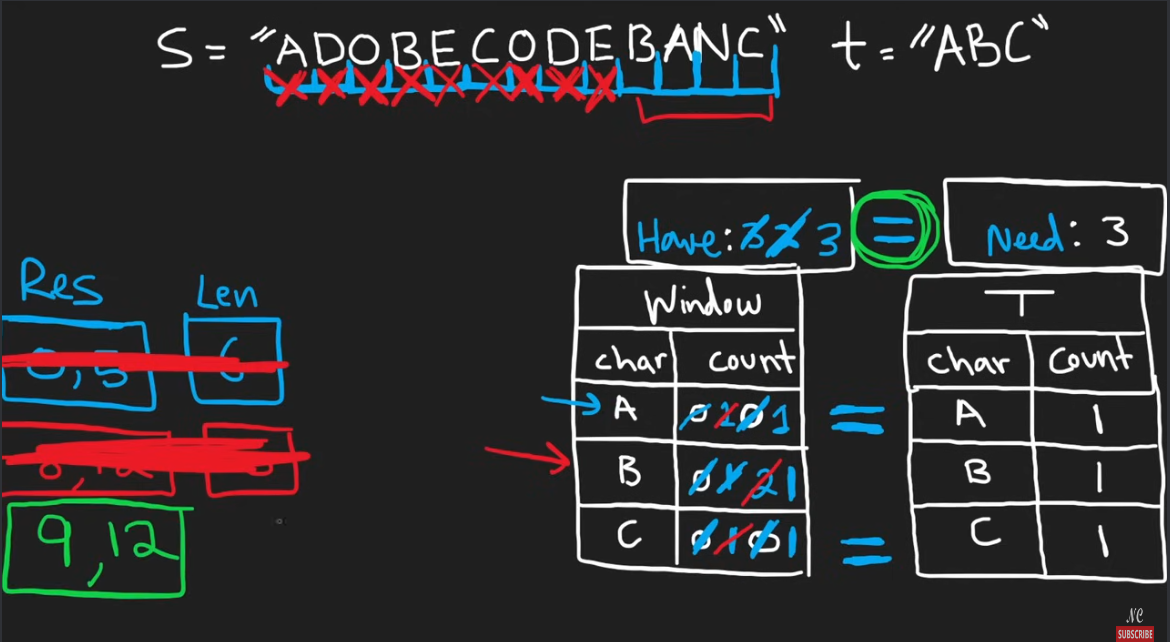 S = "ADOBECODEBANC" t = "ABC"
Have: 3 2 3 = Need: 3
Res Len
0,5 6
9,12
Window
char count
A 0 1 0 1
B 0 1 2 1
C 0 1 0 1
=
=
T
char count
A 1
B 1
C 1
NC
SUBSCRIBE